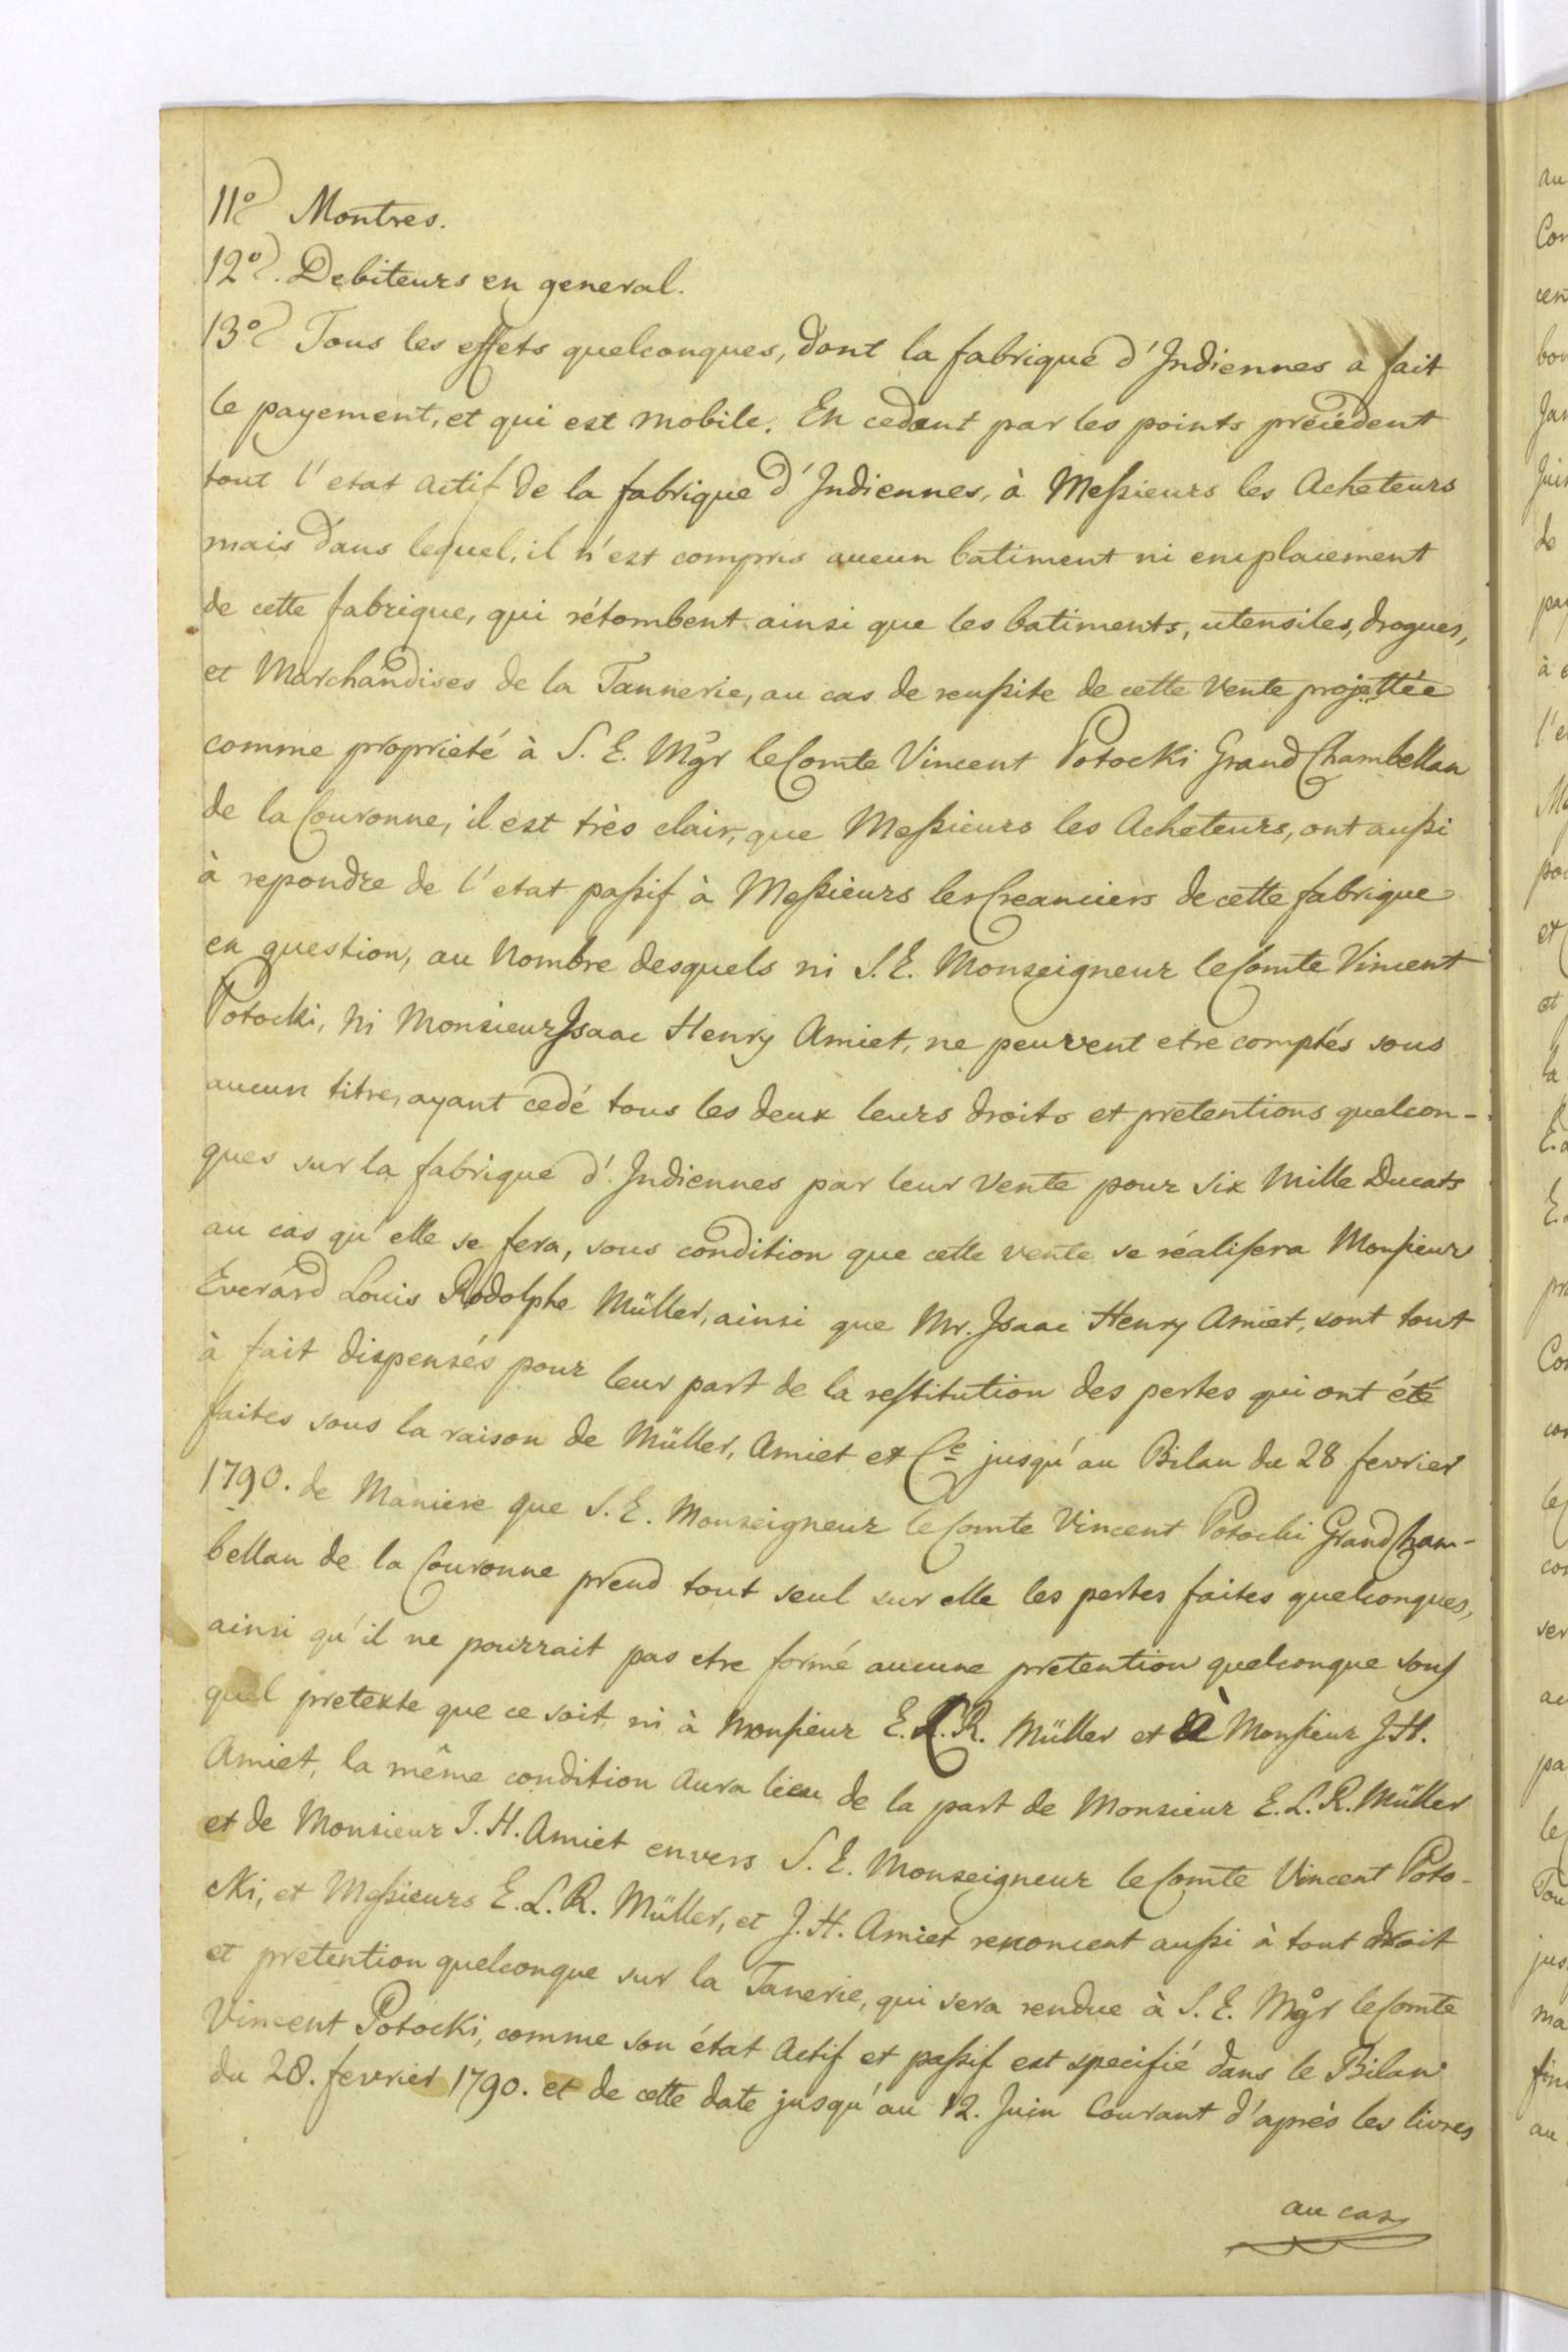 11º Montres.
12º. Debiteurs en general.
13º Tous les effets quelconques, dont la fabrique d'Indiennes a fait
le payement, et qui est mobile. En cedant par les points précédent
tout l'etat actif de la fabrique d'Indiennes, à Meßieurs les Acheteurs
mais dans lequel, il n'est compris aucun batiment ni emplacement
de cette fabrique, qui rétombent ainsi que les batiments, utensiles, drogues,
et Marchandises de la Tannerie, au cas de reußite de cette Vente projettée
comme propriété à S. E. Mgr le Comte Vincent Potocki Grand Chambellan
de la Couronne, il est très clair, que Meßieurs les Acheteurs, ont außi
à repondre de l'etat paßif à Meßieurs les Creanciers de cette fabrique
en question, au Nombre desquels ni S. E. Monseigneur le Comte Vincent
Potocki, Ni Monsieur Isaac Henry Amiet, ne peuvent etre comptés sous
aucun titre, ayant cedé tous les deux leurs droits et pretentions quelcon-
ques sur la fabrique d'Indiennes par leur Vente pour six Mille Ducats
au cas qu'elle se fera, sous condition que cette vente se réalisera Monsieur
Everard Louis Rodolphe Müller, ainsi que Mr. Isaac Henry Amiet, sont tout
à fait dispensés pour leur part de la restitution des pertes qui ont été
faites sous la raison de Müller, Amiet et Ce jusqu'au Bilan du 28 fevrier
1790. de Maniere que S. E. Monseigneur le Comte Vincent Potocki Grand Cham-
bellan de la Couronne prend tout seul sur elle les pertes faites quelconques,
ainsi qu'il ne pourrait pas etre formé aucune pretention quelconque sous
quel pretexte que ce soit, ni à Monsieur E. L. R. Müller et à Monsieur J. H.
Amiet, la même condition aura lieu de la part de Monsieur E. L. R. Müller
et de Monsieur J. H. Amiet envers S. E. Monseigneur le Comte Vincent Poto-
cki, et Meßieurs E. L. R. Müller, et J. H. Amiet renoncent außi à tout droit
et pretention quelconque sur la Tanerie, qui sera rendue à S. E. Mgr le Comte
Vincent Potocki, comme son état actif et paßif est specifié dans le Bilan
du 28. fevrier 1790. et de cette date jusqu'au 12. Juin Courant d'après les livres
au cas